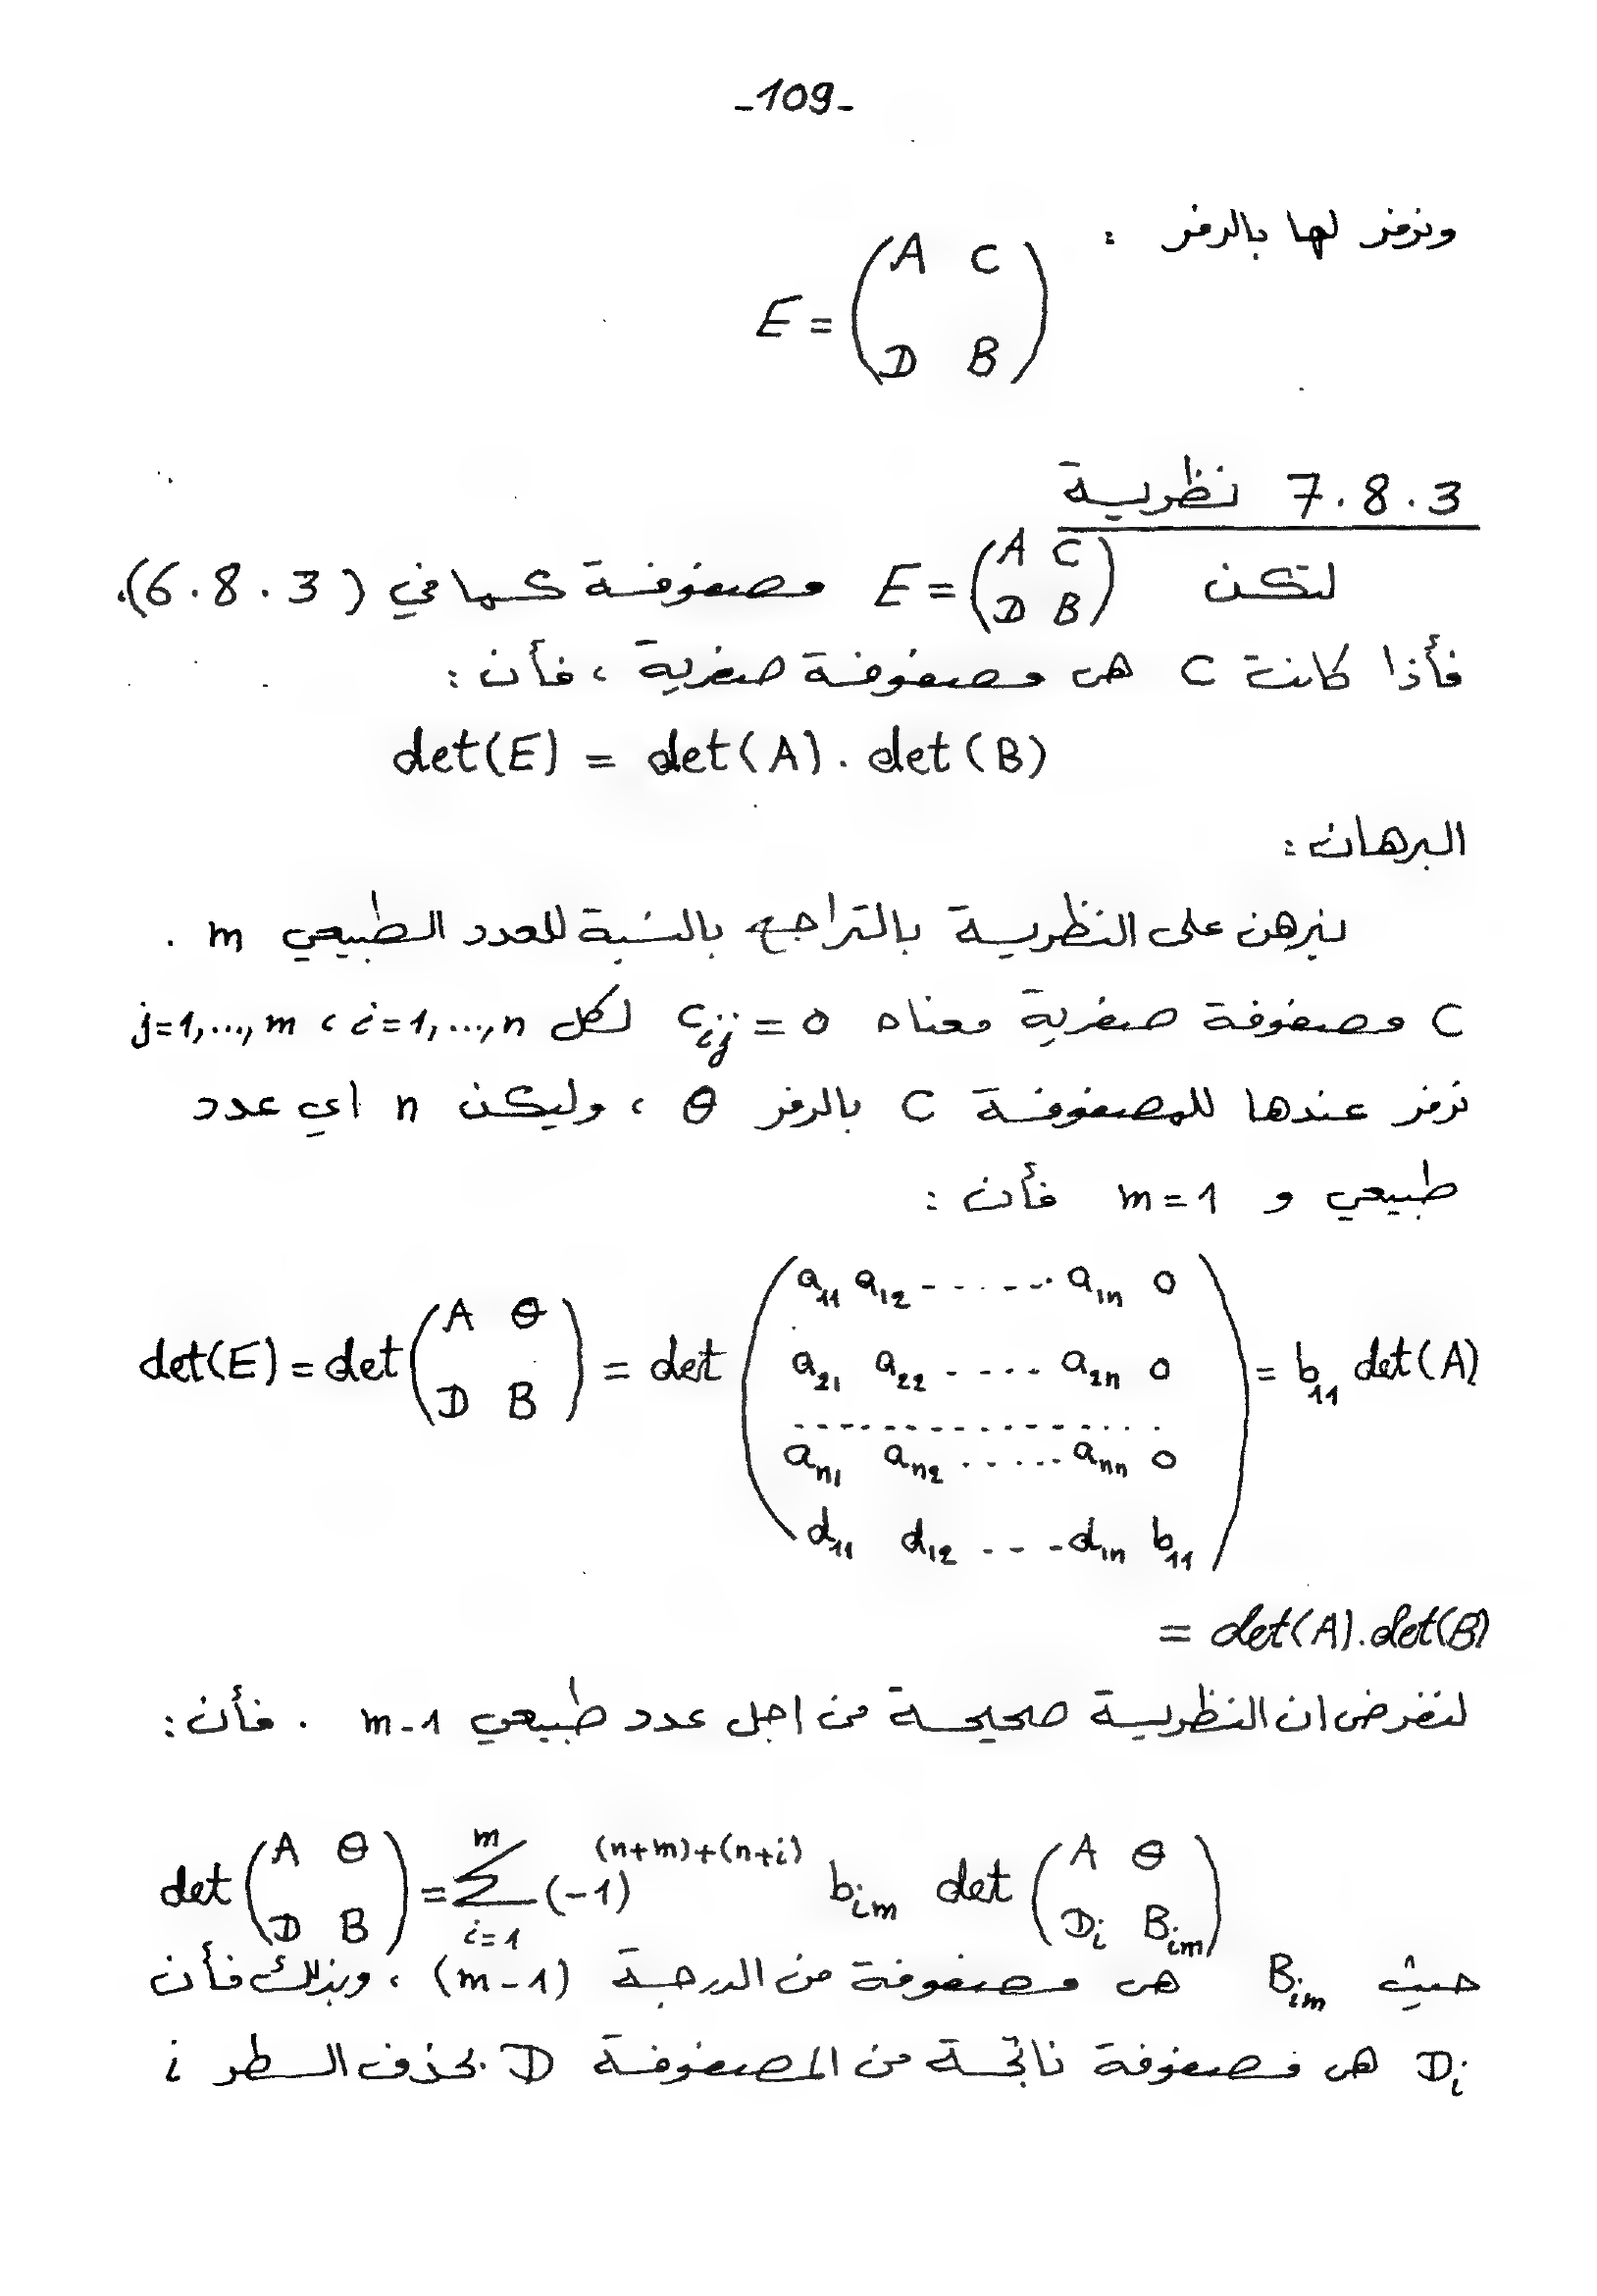 -109-
ونرمز لها بالرمز :
E = (A C
D B)
7.8.3 نظرية
لتكن E = (A C
D B) مصفوفة كما في (6.8.3).
فأذا كانت C هي مصفوفة صفرية ، فأن :
det(E) = det(A) . det(B)
البرهان :
نبرهن على النظرية بالتراجع بالنسبة للعدد الطبيعي m .
C مصفوفة صفرية معناه c_ij = 0 لكل i=1,...,n ، j=1,...,m
نرمز عندها للمصفوفة C بالرمز θ ، وليكن n اي عدد
طبيعي و m = 1 فأن :
det(E) = det (A θ
D B) = det (a_11 a_12 ....... a_1n 0
a_21 a_22 ..... a_2n 0
................
a_n1 a_n2 ...... a_nn 0
d_11 d_12 .... d_1n b_11) = b_11 det(A)
= det(A).det(B)
لنفرض ان النظرية صحيحة من اجل عدد طبيعي m-1 . فأن :
det (A θ
D B) = Σ_{i=1}^{m} (-1)^{(n+m)+(n+i)} b_im det (A θ
D_i B_im)
حيث B_im هي مصفوفة من الدرجة (m-1) ، وبذلك فأن
D_i هي مصفوفة ناتجة من المصفوفة D بحذف السطر i